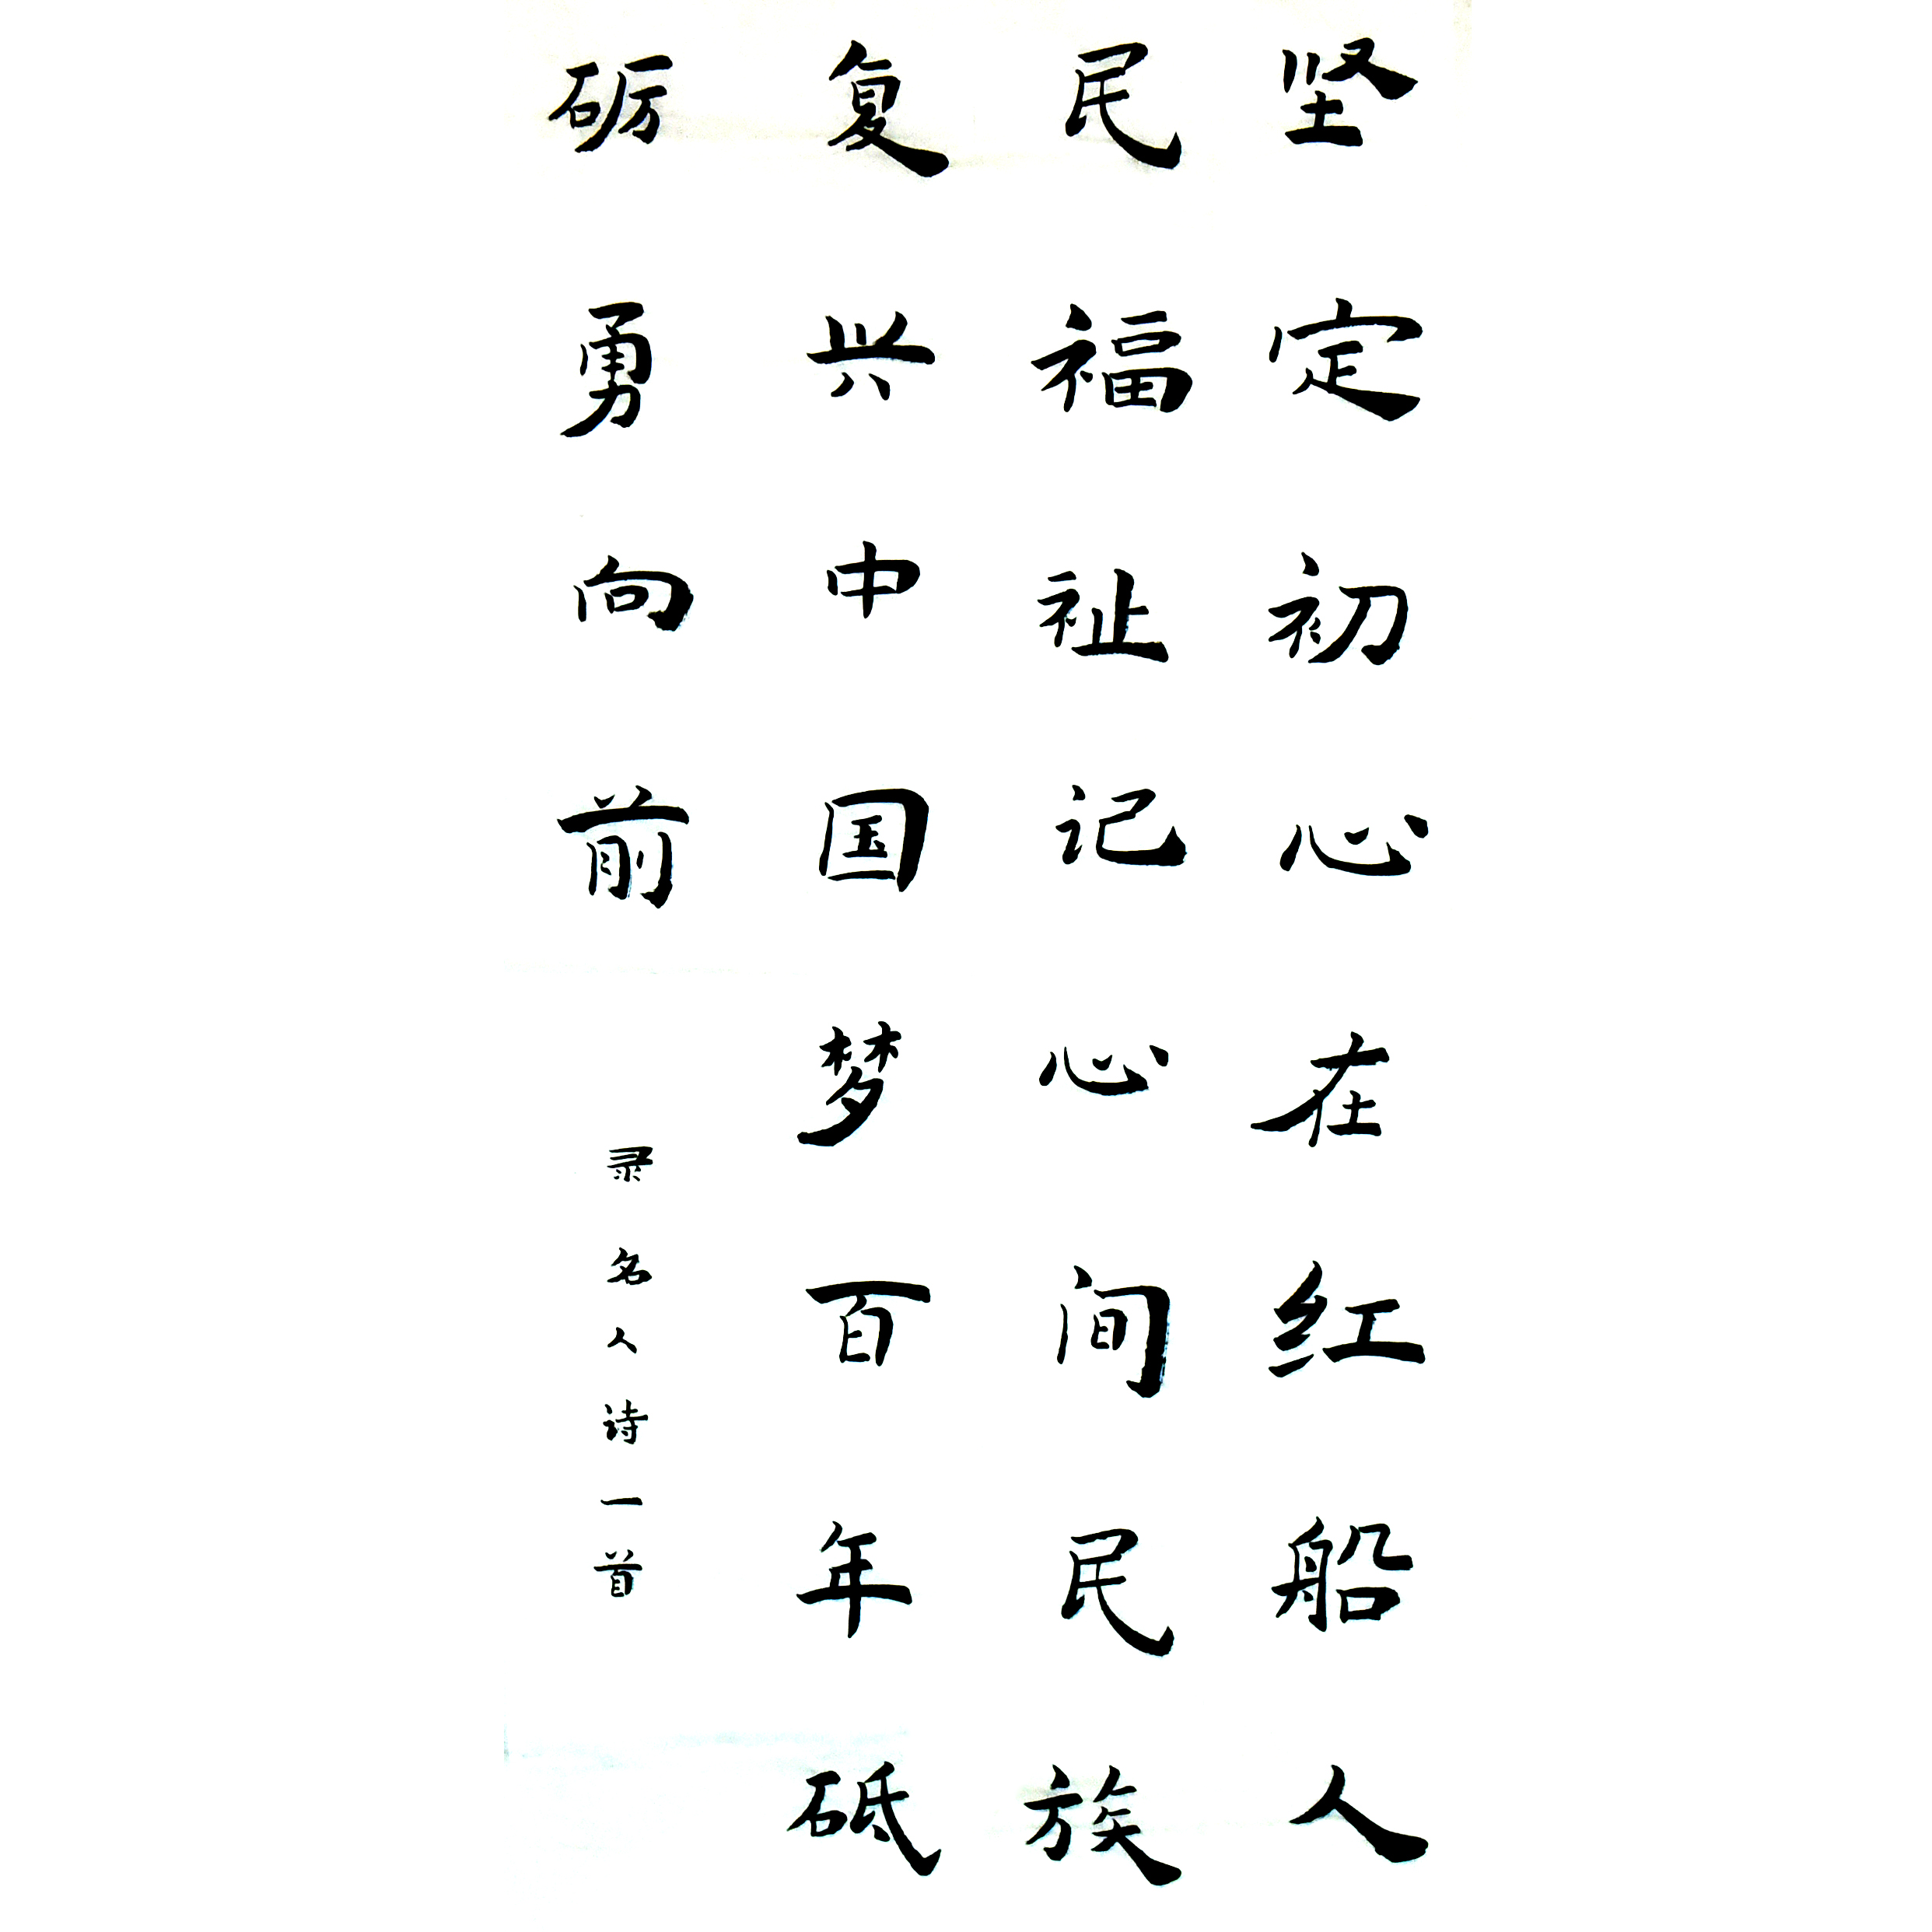 坚定初心在红船人
民福祉记心间民族
复兴中国梦百年砥
砺勇向前
录名人诗一首